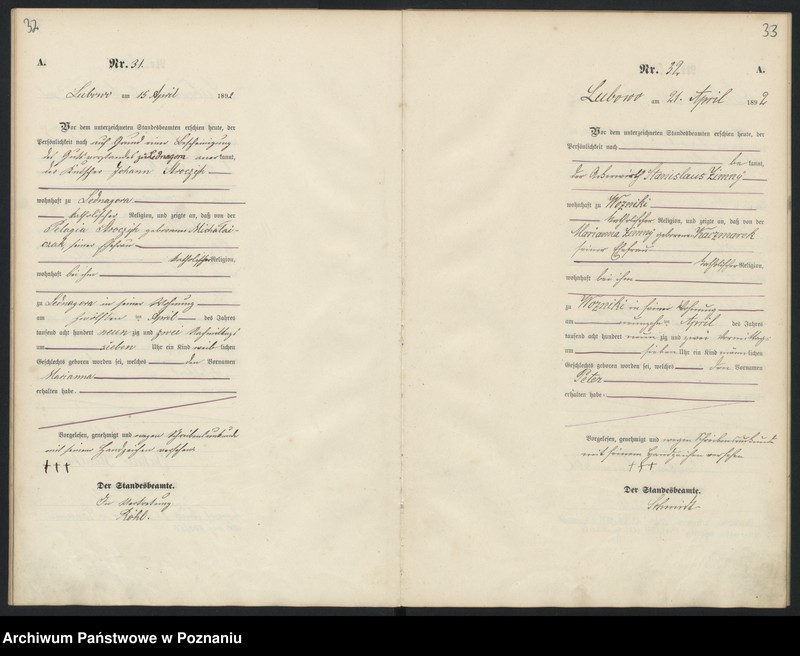 32
A.
Nr. 31.
Lubowo am 15 April 1892
Vor dem unterzeichneten Standesbeamten erschien heute, der
Persönlichkeit nach auf Grund einer Bescheinigung
des Gutsvorstandes zu Lednagora anerkannt,
der Kutscher Johann
wohnhaft zu Lednagora
katholischer Religion, und zeigte an, daß von der
Pelagia geborenen Michalai-
czak, seiner Ehefrau
katholischer Religion,
wohnhaft bei ihm
zu Lednagora in seiner Wohnung
am zwölften ten April des Jahres
tausend acht hundert neun zig und zwei Nachmittags
um sieben Uhr ein Kind weiblichen
Geschlechts geboren worden sei, welches den Vornamen
Marianna
erhalten habe.
Vorgelesen, genehmigt und wegen Schreibensunkunde
mit seinem Handzeichen versehen
† † †
Der Standesbeamte.
In Vertretung
Röhl.
33
Nr. 32.
A.
Lubowo am 21. April 1892
Vor dem unterzeichneten Standesbeamten erschien heute, der
Persönlichkeit nach
bekannt,
der Stanislaus Zimny
wohnhaft zu Wozniki
katholischer Religion, und zeigte an, daß von der
Marianna Zimny geborene Kaczmarek
seiner Ehefrau
katholischer Religion,
wohnhaft bei ihm
zu Wozniki in seiner Wohnung
am ten April des Jahres
tausend acht hundert neun zig und zwei Vormittags
um sieben Uhr ein Kind männlichen
Geschlechts geboren worden sei, welches den Vornamen
Peter
erhalten habe.
Vorgelesen, genehmigt und wegen Schreibensunkunde
mit seinem Handzeichen versehen
† † †
Der Standesbeamte.
Schmidt
Archiwum Państwowe w Poznaniu